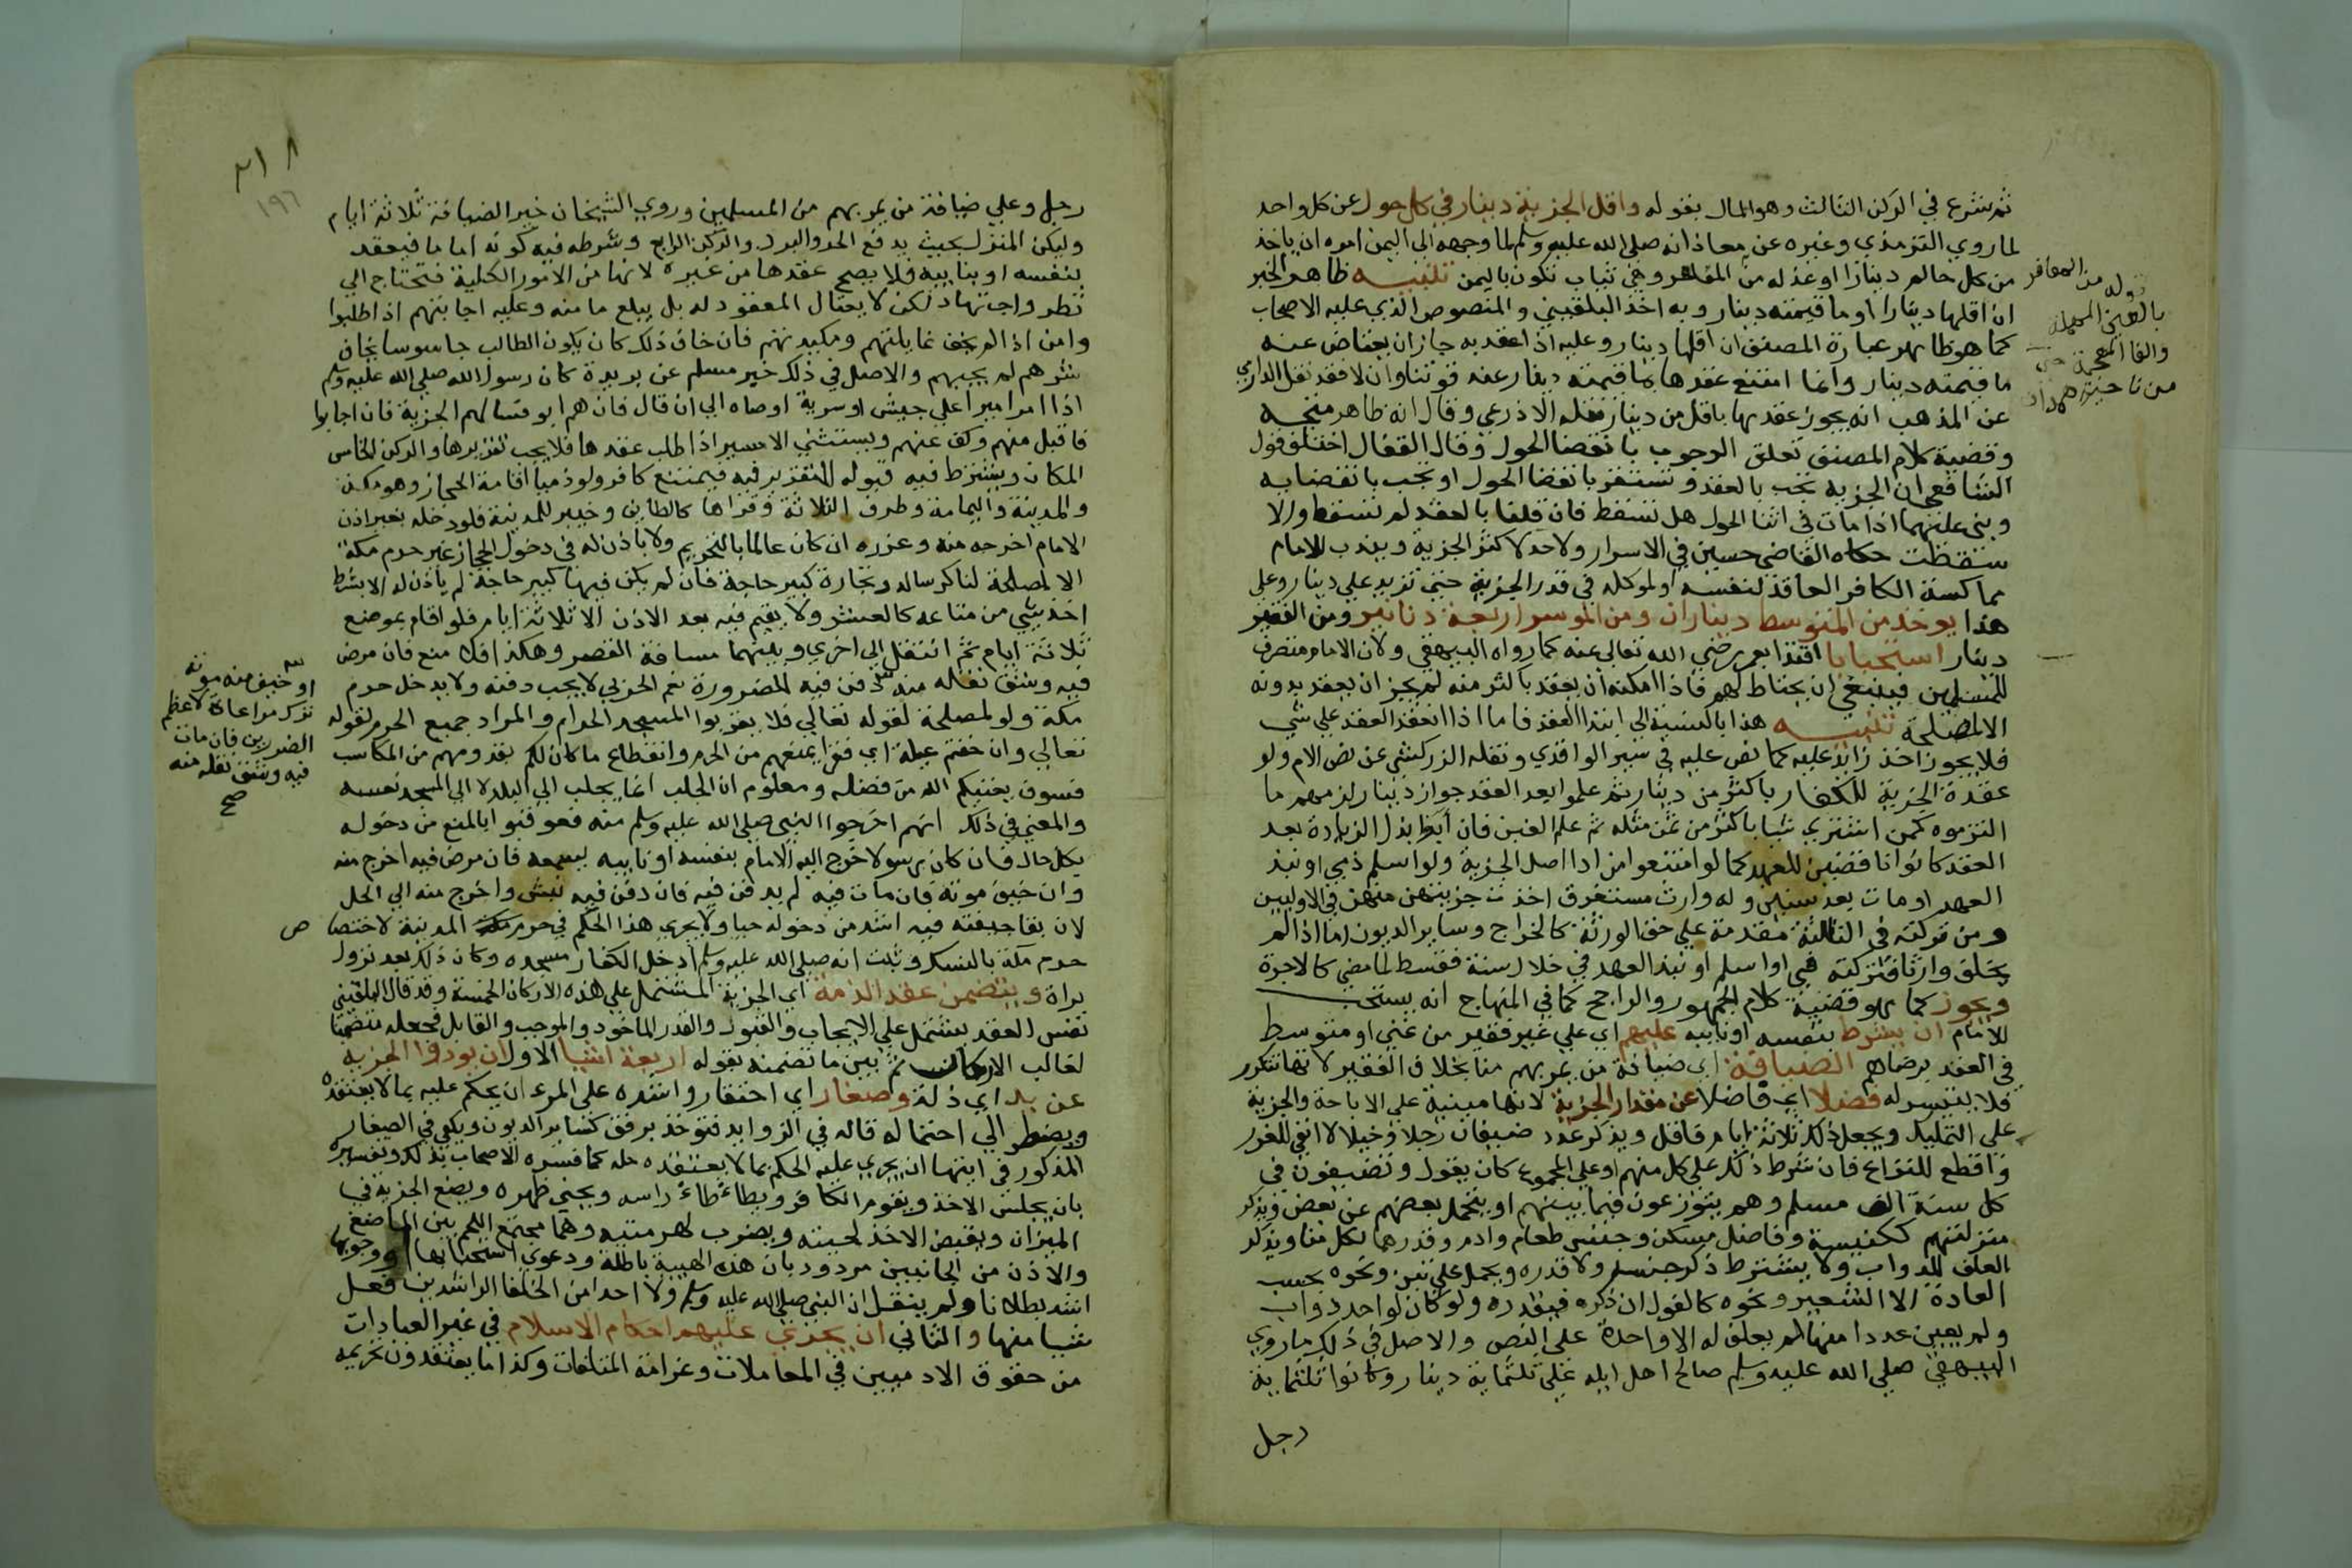 ثم شرع في الركن الثالث وهو المال بقوله واقل الجزية دينار في كل حول عن كل واحد
لما روي الترمذي وغيره عن معاذ انه صلى الله عليه وسلم لما وجهه الى اليمن امره ان ياخذ
من كل حالم دينارا او عدله من المعافر وهي ثياب تكون باليمن تنبيه ظاهر الخبر
ان اقلها دينارا او ما قيمته دينار وبه اخذ البلقيني والمنصوص الذي عليه الاصحاب
كما هو ظاهر عبارة المصنف ان اقلها دينار وعليه اذا عقد به جاز ان يعتاض عنه
ما قيمته دينار وانما امتنع عقدها بما قيمته دينار عنه فوتنا وان لا فقد نقل الدارمي
عن المذهب انه يجوز عقدها باقل من دينار نقله الاذرعي وقال انه ظاهر متجه
وقضية كلام المصنف تعلق الوجوب بانقضا الحول وقال القفال اختلف قول
الشافعي ان الجزية تجب بالعقد وتستقر بانقضا الحول او تجب بانقضايه
وبنى عليهما اذا مات في اثنا الحول هل تسقط فان قلنا بالعقد لم تسقط والا
سقطت حكاه القاضي حسين في الاسرار ولا حد لاكثر الجزية ويندب للامام
مماكسة الكافر العاقد لنفسه او لموكله في قدر الجزية حتى تزيد على دينار وعلى
هذا يوخذ من المتوسط ديناران ومن الموسر اربعة دنانير ومن الفقير
دينار استحبابا اقتدا بعمر رضي الله تعالى عنه كما رواه البيهقي ولان الامام متصرف
للمسلمين فينبغي ان يحتاط لهم فاذا امكنه ان يعقد باكثر منه لم يجز ان يعقد بدونه
الا لمصلحة تنبيه هذا بالنسبة الى ابتدا العقد فاما اذا انعقد العقد على شي
فلا يجوز اخذ زايد عليه كما نص عليه في سير الواقدي ونقله الزركشي عن نص الام ولو
عقدة الجزية للكفار باكثر من دينار ثم علموا بعد العقد جواز دينار لزمهم ما
التزموه كمن اشترى شيا باكثر من ثمن مثله ثم علم الغبن فان ابوا بذل الزيادة بعد
العقد كانوا ناقضين للعهد كما لو امتنعوا من ادا اصل الجزية ولو اسلم ذمي او نبذ
العهد او مات بعد سنين وله وارث مستغرق اخذت جزيتهن منهن في الاوليين
ومن تركته في الثالثة مقدمة على حق الورثة كالخراج وساير الديون اما اذا لم
يخلف وارثا فتركته فيئ او اسلم او نبذ العهد في خلال سنة فقسط لما مضى كالاجرة
ويجوز كما هو قضية كلام الجمهور والراجح كما في المنهاج انه يستحب
للامام ان يشرط بنفسه او نايبه عليهم اي على غير فقير من غني او متوسط
في العقد برضاهم الضيافة اي ضيافة من يمر بهم منا بخلاف الفقير لانها تتكرر
فلا يتيسر له فضلا اي فاضلا عن مقدار الجزية لانها مبنية على الاباحة والجزية
على التمليك ويجعل ذلك ثلاثة ايام فاقل ويذكر عدد ضيفان رجلا وخيلا لانفي للغرر
واقطع للنزاع فان شرط ذلك على كل منهم او على المجموع كان يقول وتضيفون في
كل سنة الف مسلم وهم يتوزعون فيما بينهم او يتحمل بعضهم عن بعض ويذكر
منزلتهم ككنيسة وفاضل مسكن وجنس طعام وادم وقدرهما لكل منا ويذكر
العلف للدواب ولا يشترط ذكر جنسه ولا قدره ويحمل على تبن ونحوه بحسب
العادة الا الشعير ونحوه كالفول ان ذكره فيقدره ولو كان لواحد دواب
ولم يعين عددا منها لم يعلف له الا واحدة على النص والاصل في ذلك ما روي
البيهقي صلى الله عليه وسلم صالح اهل ايله على ثلثماية دينار وكانوا ثلثماية
رجل
قوله من المعافر
بالعين المهملة
والفا المعجمة حي
من ناحية همدان
٢١٨
١٩٦
رجل وعلى ضيافة من يمر بهم من المسلمين وروي الشيخان خير الضيافة ثلاثة ايام
وليكن المنزل بحيث يدفع الحر والبرد والركن الرابع وشرطه فيه كونه اماما فيعقد
بنفسه او بنايبه فلا يصح عقدها من غيره لانها من الامور الكلية فتحتاج الى
نظر واجتهاد لكن لا يغتال المعقود له بل يبلغ مامنه وعليه اجابتهم اذا طلبوا
وامن اذا لم يخف غايلتهم ومكيدتهم فان خاف ذلك كان يكون الطالب جاسوسا يخاف
شرهم لم يجبهم والاصل في ذلك خبر مسلم عن بريدة كان رسول الله صلى الله عليه وسلم
اذا امر اميرا على جيش او سرية اوصاه الى ان قال فان هم ابو فسالهم الجزية فان اجابوا
فاقبل منهم وكف عنهم ويستثنى الاسير اذا طلب عقدها فلا يجب تقريرها والركن الخامس
المكان ويشترط فيه قبوله للتقرير فيه فيمتنع كافر ولو ذميا اقامة الحجاز وهو مكة
والمدينة واليمامة وطرف الثلاثة وقراها كالطايف وخيبر للمدينة فلو دخله بغير اذن
الامام اخرجه منه وعزره ان كان عالما بالتحريم ولا ياذن له في دخول الحجاز غير حرم مكة
الا لمصلحة لنا كرساله وتجارة كبير حاجة فان لم يكن فيها كبير حاجة لم ياذن له الا بشرط
اخذ شي من متاعه كالعشر ولا يقيم فيه بعد الاذن الا ثلاثة ايام فلو اقام بموضع
ثلاثة ايام ثم انتقل الى اخرى وبينهما مسافة القصر وهكذا فلا منع فان مرض
فيه وشق نقله منه دفن فيه للضرورة نعم الحربي لا يجب دفنه ولا يدخل حرم
مكة ولو لمصلحة لقوله تعالى فلا يقربوا المسجد الحرام والمراد جميع الحرم لقوله
تعالى وان خفتم عيلة اي فقرا بمنعهم من الحرم وانقطاع ما كان لكم بقدومهم من المكاسب
فسوف يغنيكم الله من فضله ومعلوم ان الجلب انما يجلب الى البلد لا الى المسجد نفسه
والمعنى في ذلك انهم اخرجوا النبي صلى الله عليه وسلم منه فعوقبوا بالمنع من دخوله
بكل حال فان كان رسولا خرج اليه الامام بنفسه او نايبه ليسمعه فان مرض فيه اخرج منه
وان خيف موته فان مات فيه لم يدفن فيه فان دفن فيه نبش واخرج منه الى الحل
لان بقا جيفته فيه اشد من دخوله حيا ولا يجري هذا الحكم في حرم المدينة لاختصاص
حرم مكة بالنسك وثبت انه صلى الله عليه وسلم ادخل الكفار مسجده وكان ذلك بعد نزول
براة ويتضمن عقد الذمة اي الجزية المشتمل على هذه الاركان الخمسة وقد قال البلقيني
نفس العقد يشتمل على الايجاب والقبول والقدر الماخوذ والموجب والقابل فجعله متضمنا
لغالب الاركان ثم بين ما تضمنه بقوله اربعة اشيا الاول ان يودوا الجزية
عن يد اي ذلة وصغار اي احتقار واشده على المرء ان يحكم عليه بما لا يعتقده
ويضطر الى احتماله قاله في الزوايد فتوخذ برفق كساير الديون ويكفي في الصغار
المذكور في ايتها ان يجري عليه الحكم بما لا يعتقد حله كما فسره الاصحاب بذلك وتفسيره
بان يجلس الاخذ ويقوم الكافر ويطاطا راسه ويحني ظهره ويضع الجزية في
الميزان ويقبض الاخذ لحيته ويضرب لهزمتيه وهما مجتمع اللحم بين الماضغ
والاذن من الجانبين مردود بان هذه الهيية باطلة ودعوى استحبابها او وجوبها
اشد بطلانا ولم ينقل ان النبي صلى الله عليه وسلم ولا احدا من الخلفا الراشدين فعل
شيا منها والثاني ان يجري عليهم احكام الاسلام في غير العبادات
من حقوق الادميين في المعاملات وغرامة المتلفات وكذا ما يعتقدون تحريمه
او خيف منه موته
ترك مراعاة لاعظم
الضررين فان مات
فيه وشق نقله منه
صح